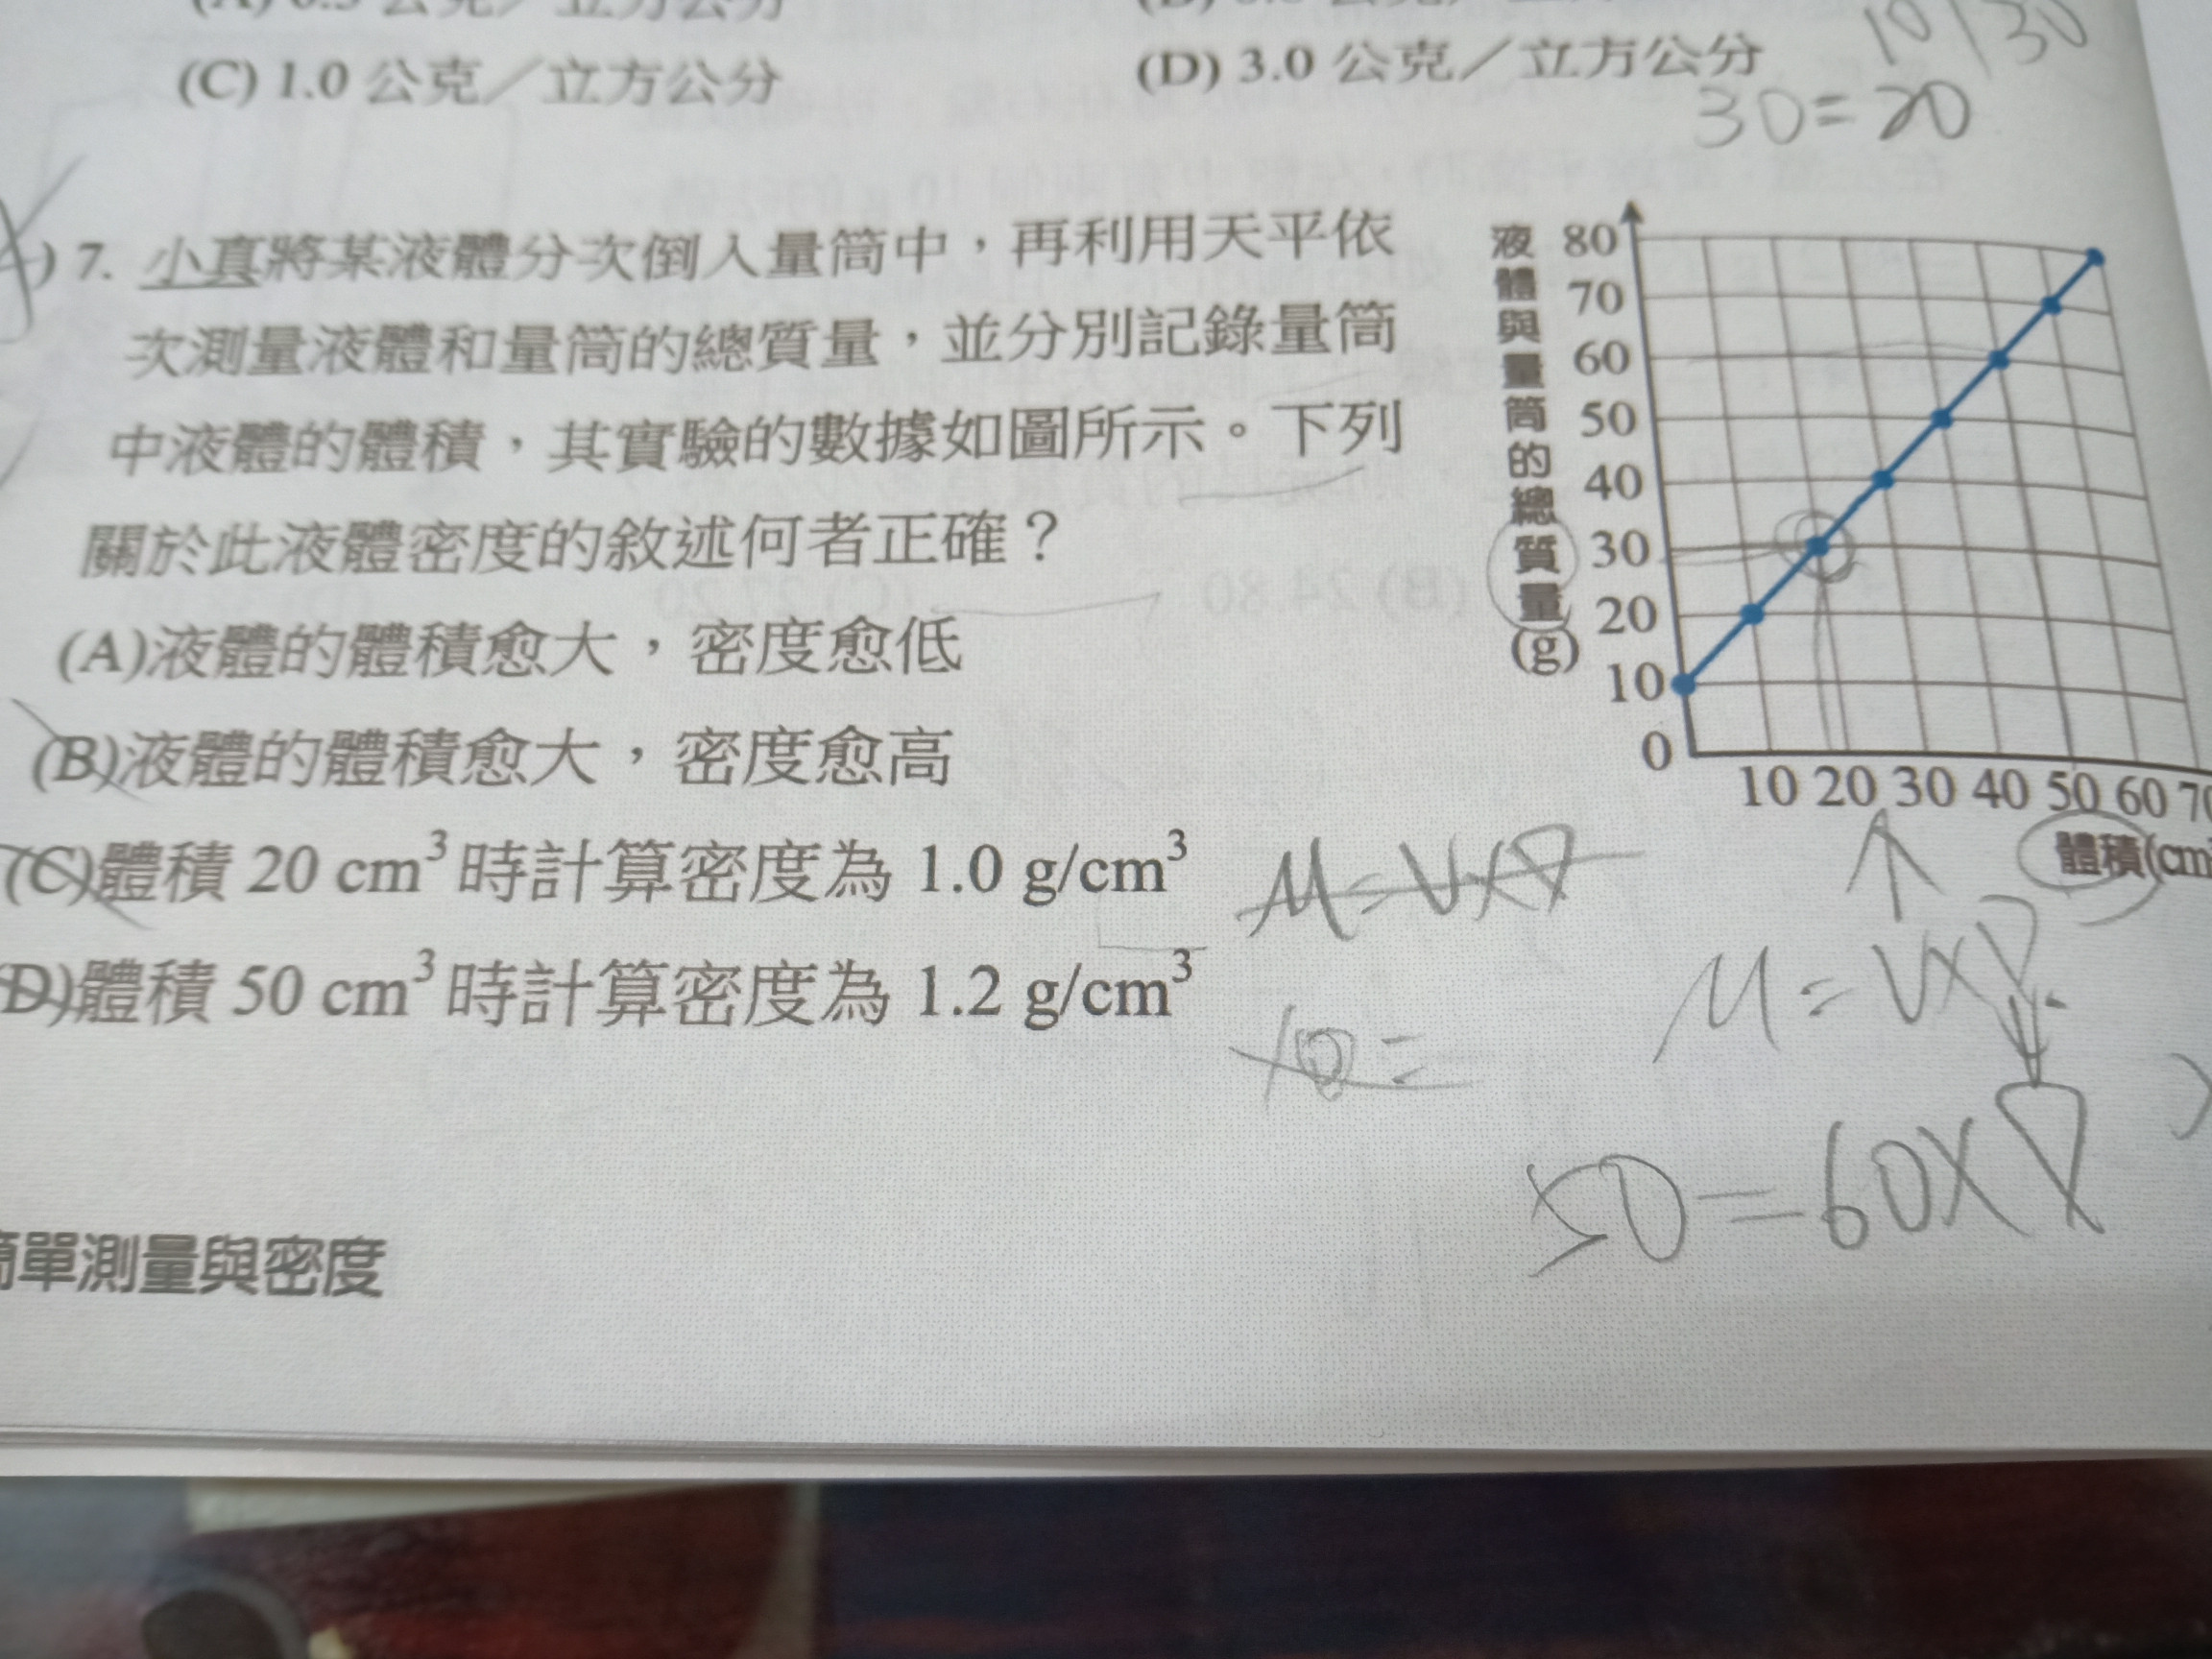 公克／立方公分
(C) 1.0 公克／立方公分
(D) 3.0 公克／立方公分
10 30
30=20
) 7. 小真將某液體分次倒入量筒中，再利用天平依
次測量液體和量筒的總質量，並分別記錄量筒
中液體的體積，其實驗的數據如圖所示。下列
關於此液體密度的敘述何者正確？
(A)液體的體積愈大，密度愈低
(B)液體的體積愈大，密度愈高
(C)體積 20 cm³時計算密度為 1.0 g/cm³
(D)體積 50 cm³時計算密度為 1.2 g/cm³
液體與量筒的總質量(g)
80
70
60
50
40
30
20
10
0
10 20 30 40 50 60 70
體積(cm
M=V×D
M=V×D
10=
50=60×D
簡單測量與密度